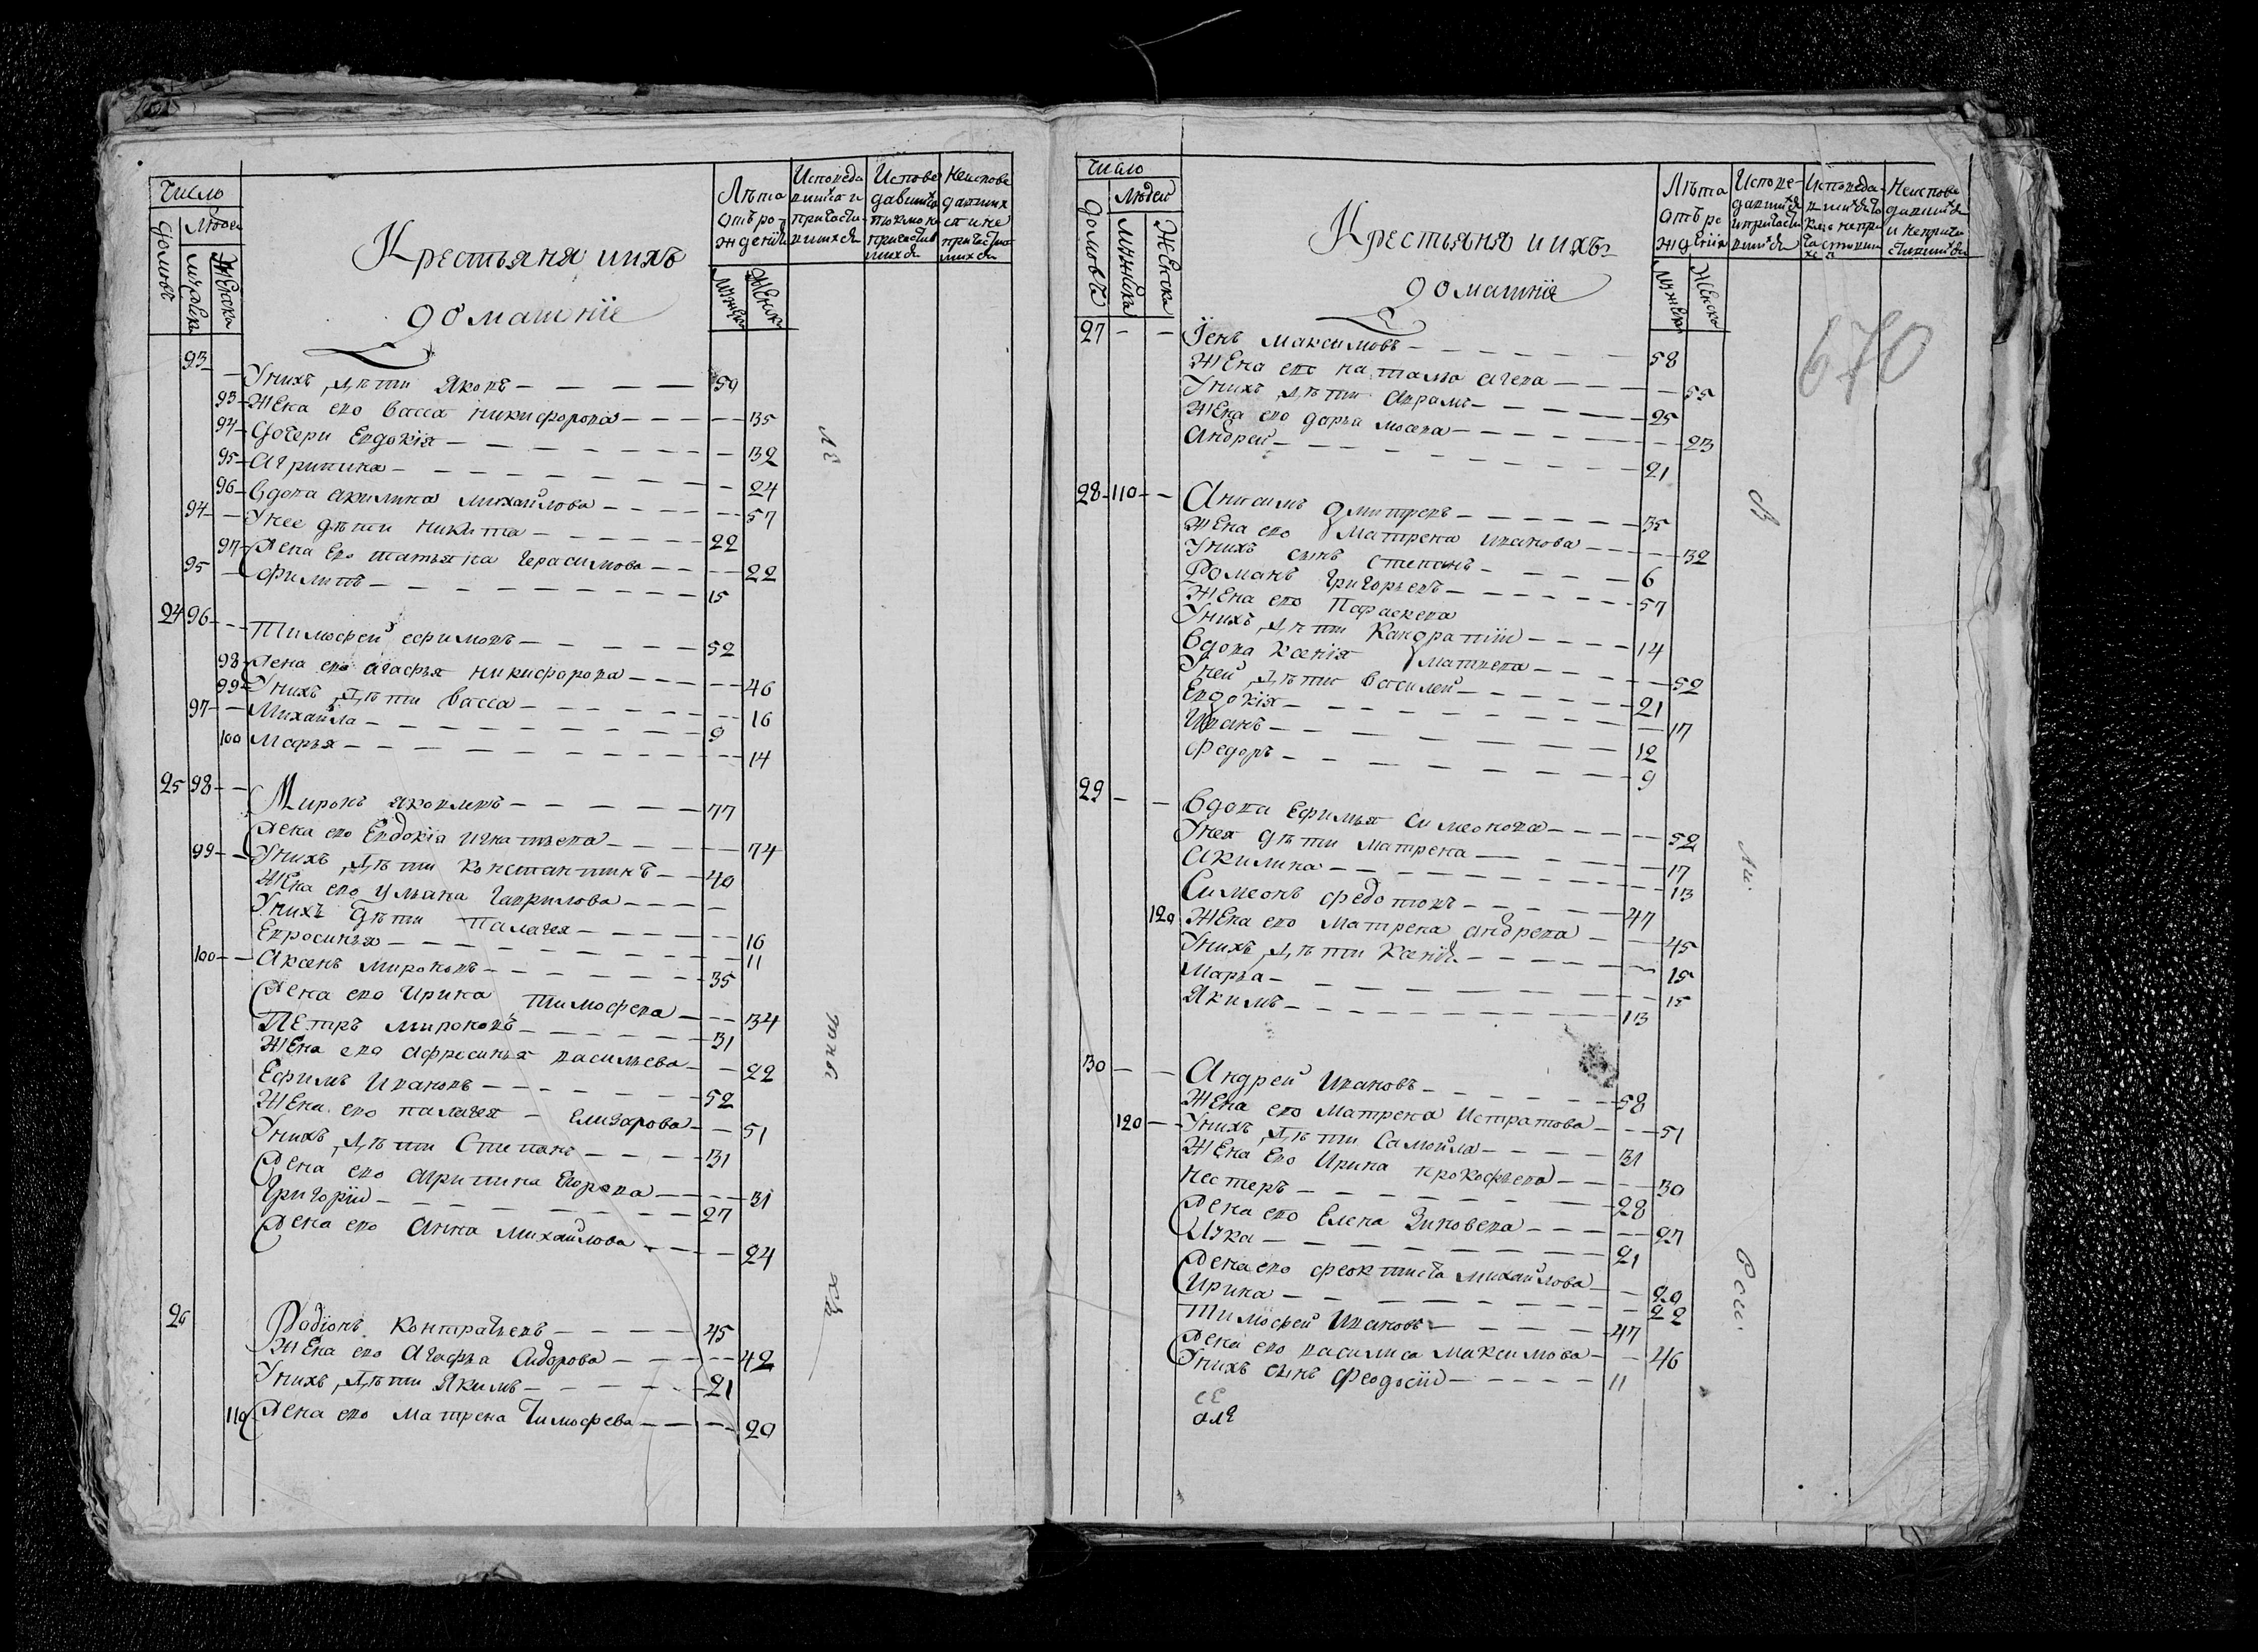 Число
Людей
домовъ
мужска
Женска
Крестьяня иихъ
домашніе
Лѣта
отъ ро-
жденія
мужска
Женска
Исповеда
вшихся и
причасти-
вшихся
93 - Унихъ дѣти Яковъ - 59
93 - Жена его васса никифорова - 35
94 - Дочери Евдокія - 32
95 - Агрипина - 24
96 - Вдова акилина михайлова - 57
94 - Унее дѣти никита - 22
97 - Жена Его татьяна герасимова - 22
95 - филипъ - 15
24 96 - Тимофей ефимовъ - 52
98 Жена его агафья никифорова - 46
99 - Унихъ дѣти васса - 16
97 - Михайла - 9
100 Марья - 14
25 98 - Миронъ яковлевъ - 77
Жена его Евдокія игнатьева - 74
99 - Унихъ дѣти константинъ - 40
Жена его ульяна гаврилова -
Унихъ дѣти палагея - 16
Евросинья - 11
100 - Аксенъ мироновъ - 35
Жена его Ирина тимофева - 34
ПЕтръ мироновъ - 31
Жена его афросинья васильева - 22
Ефимъ Ивановъ - 52
Жена его палагея - Елизарова - 51
Унихъ дѣти Степанъ - 31
Жена его агрипина Егорова - 31
Григорій - 27
Жена его Анна михайлова - 24
26 Радіонъ Контратьевъ - 45
Жена его Агафья Сидорова - 42
Унихъ дѣти Якимъ - 21
110 Жена его матрена Тимофева - 20
Число
Людей
домовъ
мужска
Женска
Крестьяня иихъ
домашнія
Лѣта
отъ ро
жденія
мужска
Женска
670
27 - - Іевъ максимовъ - 58
Жена его наталья - 55
Унихъ дѣти аврамъ - 25
Жена его дарья мосева - 23
Андрей - 21
28 - 110 - Анисимъ дмитревъ - 35
Жена его матрена иванова - 32
Унихъ сынъ степанъ - 6
Романъ григорьевъ - 57
Жена его Парасковя
Унихъ дѣти Кандратій - 14
Вдова ксенія матвева - 52
Уней дѣти василей - 21
Евдокія - 17
Иванъ - 12
федоръ - 9
29 - - Вдова Ефимья симеонова - 52
Унея дѣти матрена - 17
акилина - 13
Симеонъ федотовъ - 47
120 Жена его матрена андрева - 45
Унихъ дѣти Ксенія - 15
Марья - 15
Якимъ - 13
30 - - Андрей Ивановъ - 58
Жена его матрена Истратова - 51
120 - Унихъ дѣти Самойла - 31
Жена Его Ирина прокофьева - 30
нестеръ - 28
Жена его Елена Зиновева - 27
Лука - 21
Жена его феоктиста михайлова - 20
Ирина - 22
Тимофей Ивановъ - 47
Жена его василиса максимова - 46
Унихъ сынъ Феодосій - 11